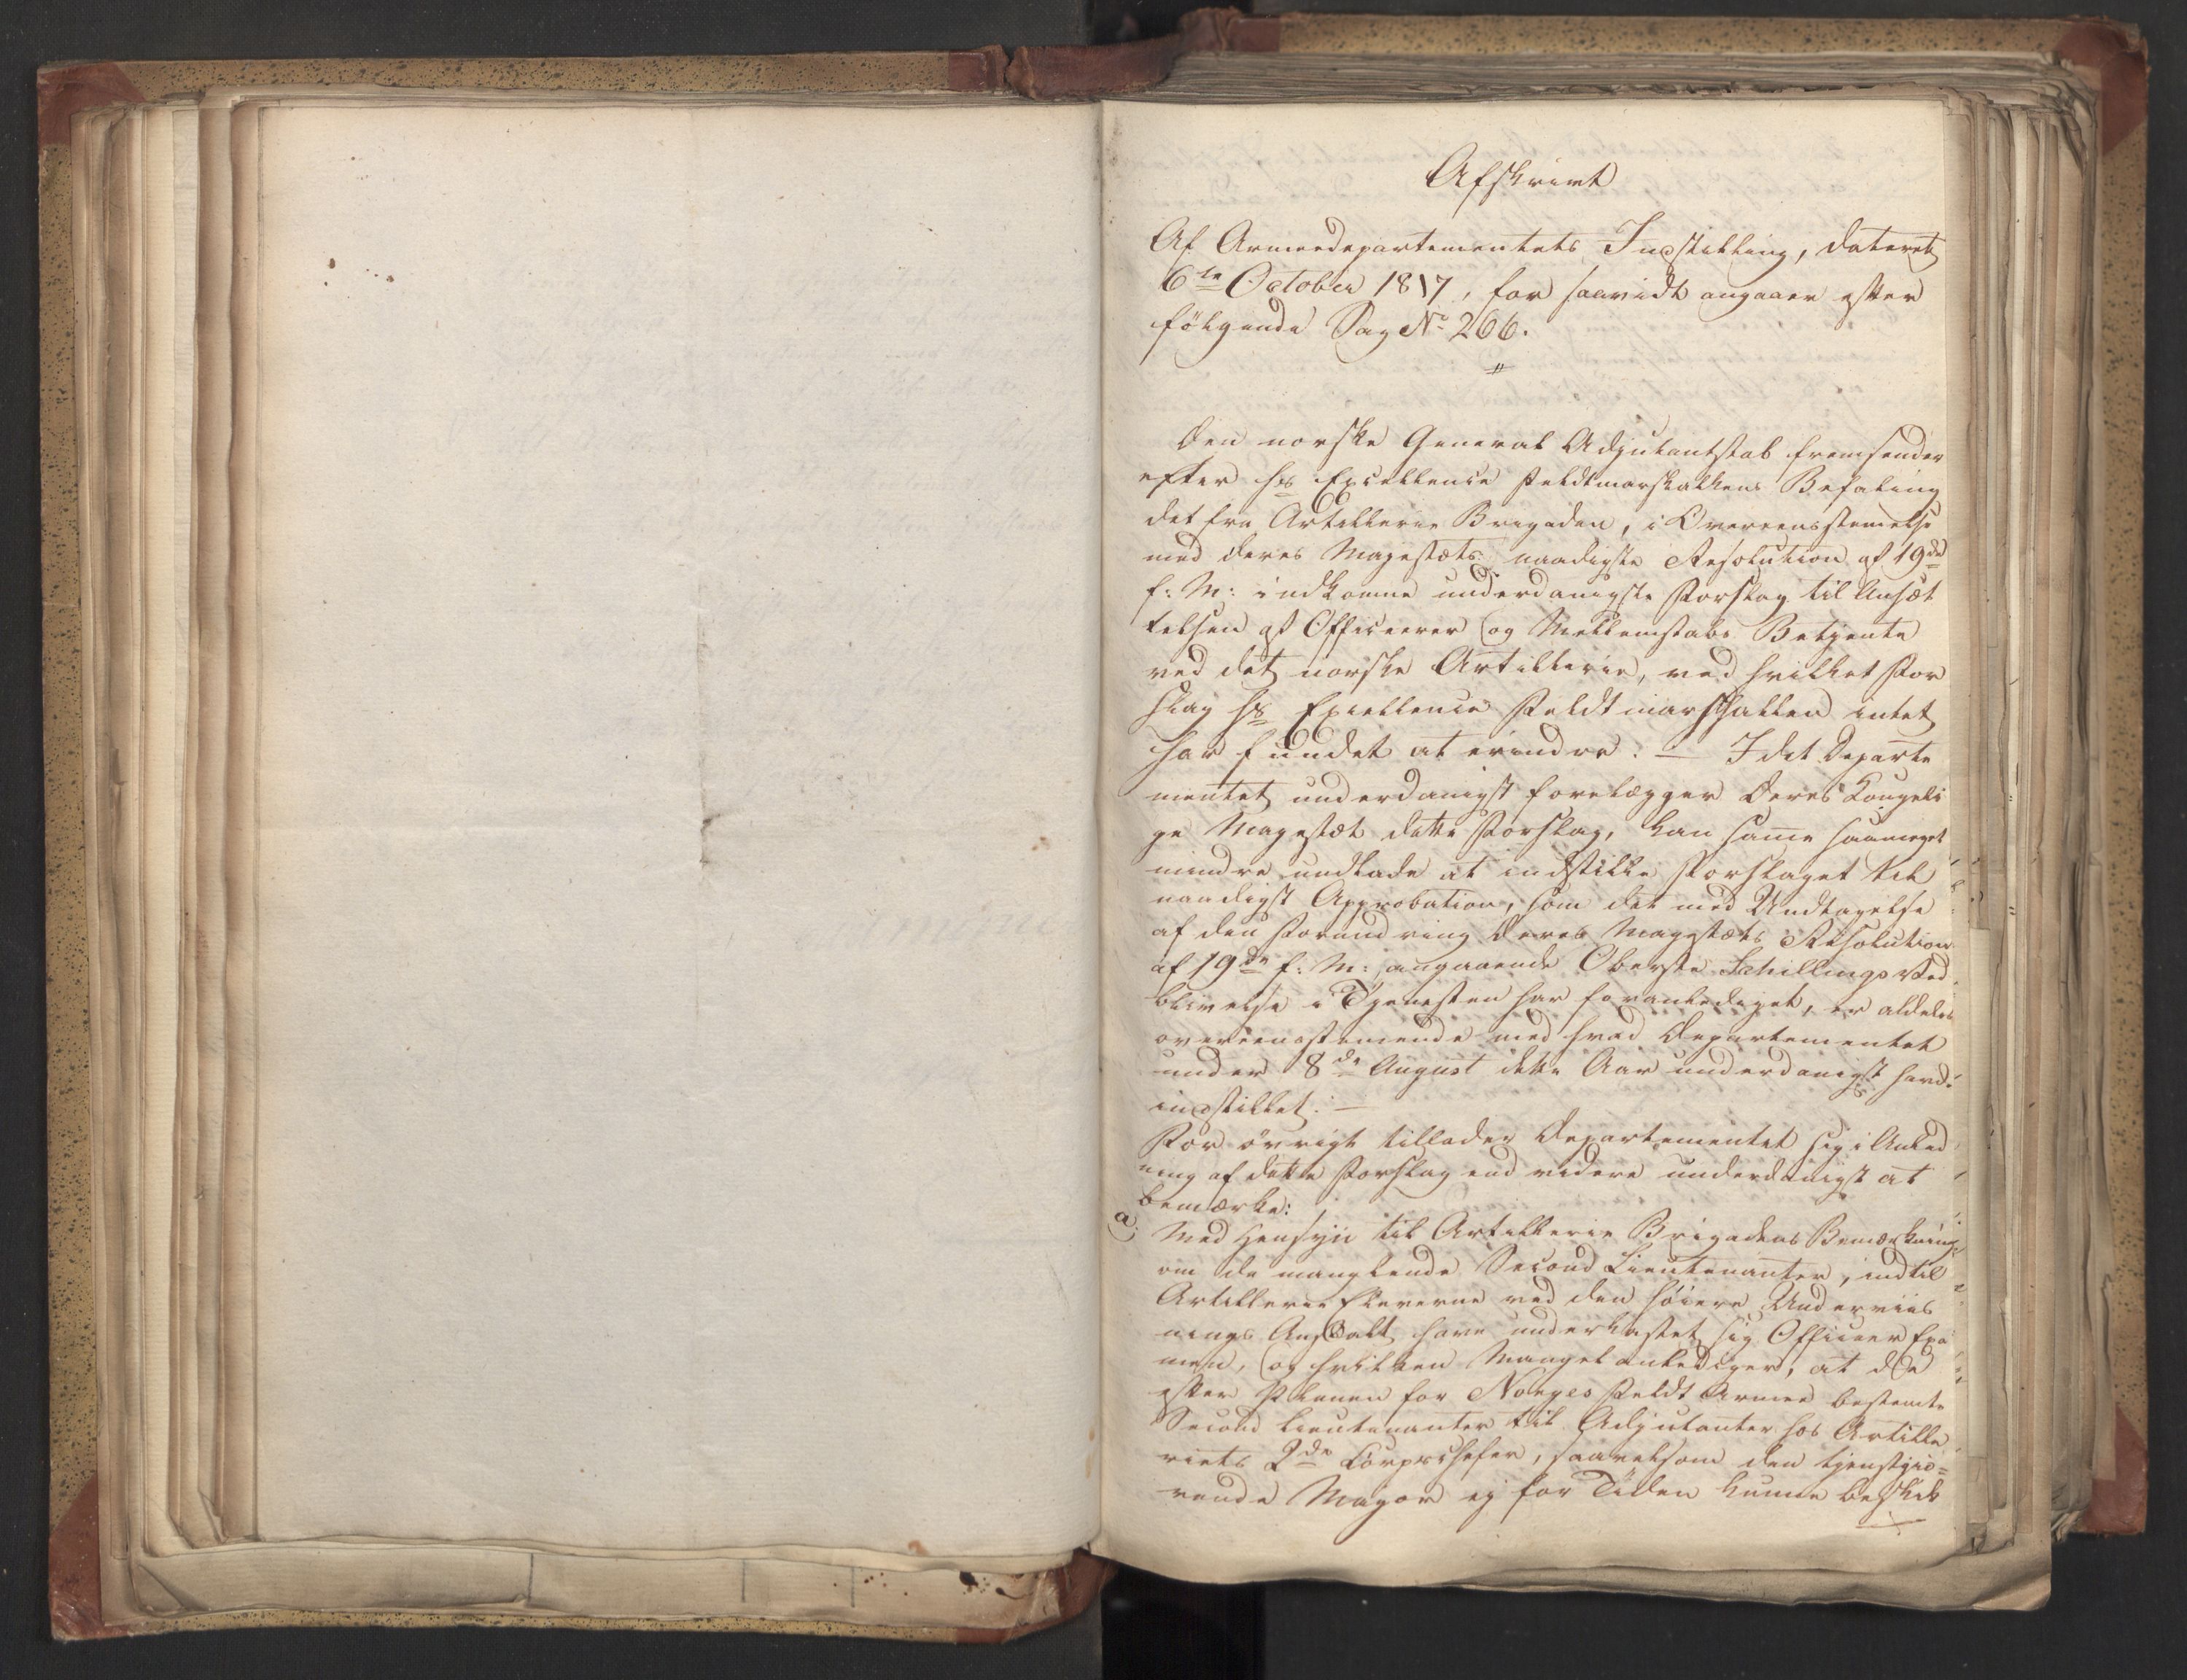 Afskrivt
Af Armeedepartementets Indstilling, dateret
6te October 1817, for saavidt angaaer efter
følgende Sag No 266.
Den norske General Adjutantstab fremsender
efter Hs Excellence Feldtmarskalkens Befaling
det fra Artillerie Brigaden, i Overeensstemelse
med Deres Majestæts naadigste Resolution af 19de
f: M: indkomne underdanigste Forslag til Ansæt
telsen af Officerer og Mellemstabs Betjente
ved det norske Artillerie, ved hvilket For
slag Hs Excellence Feldtmarskallen intet
har fundet at erindre: — Idet Departe
mentet underdanigst forelægger Deres Kongeli
ge Majestæt dette Forslag, kan same saameget
mindre undlade at indstille Forslaget til
naadigst Approbation, som det med Undtagelse
af den Forandring Deres Majestæts Resolution
af 19de f: M: angaaende Oberste Schillings Ved
blivelse i Tjenesten har foranlediget, er aldeles
overeenstemende med hvad Departementet
under 8de August dette Aar underdanigst havde
indstillet: —
For øvrigt tillader Departementet sig i Anled
ning af dette Forslag end videre underdanigst at
bemærke:
a. Med Hensyn til Artillerie Brigadens Bemærkning
om de manglende Second Lieutenanter, indtil
Artillerie Eleverne ved den høiere Underviis
nings Anstalt have underkastet sig Officeer Exa
men, og hvilken Mangel anlediger, at de
efter Planen for Norges Feldt Armee bestemte
Second Lieutenanter til Adjutanter hos Artille
riets 2de Corpschefer, saavelsom den tjenstgiø=
rende Major ej for Tiden kunne beskik